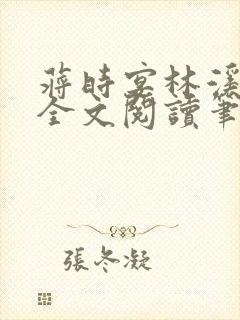 蔣時宴林溪
全文閱讀筆
張冬凝